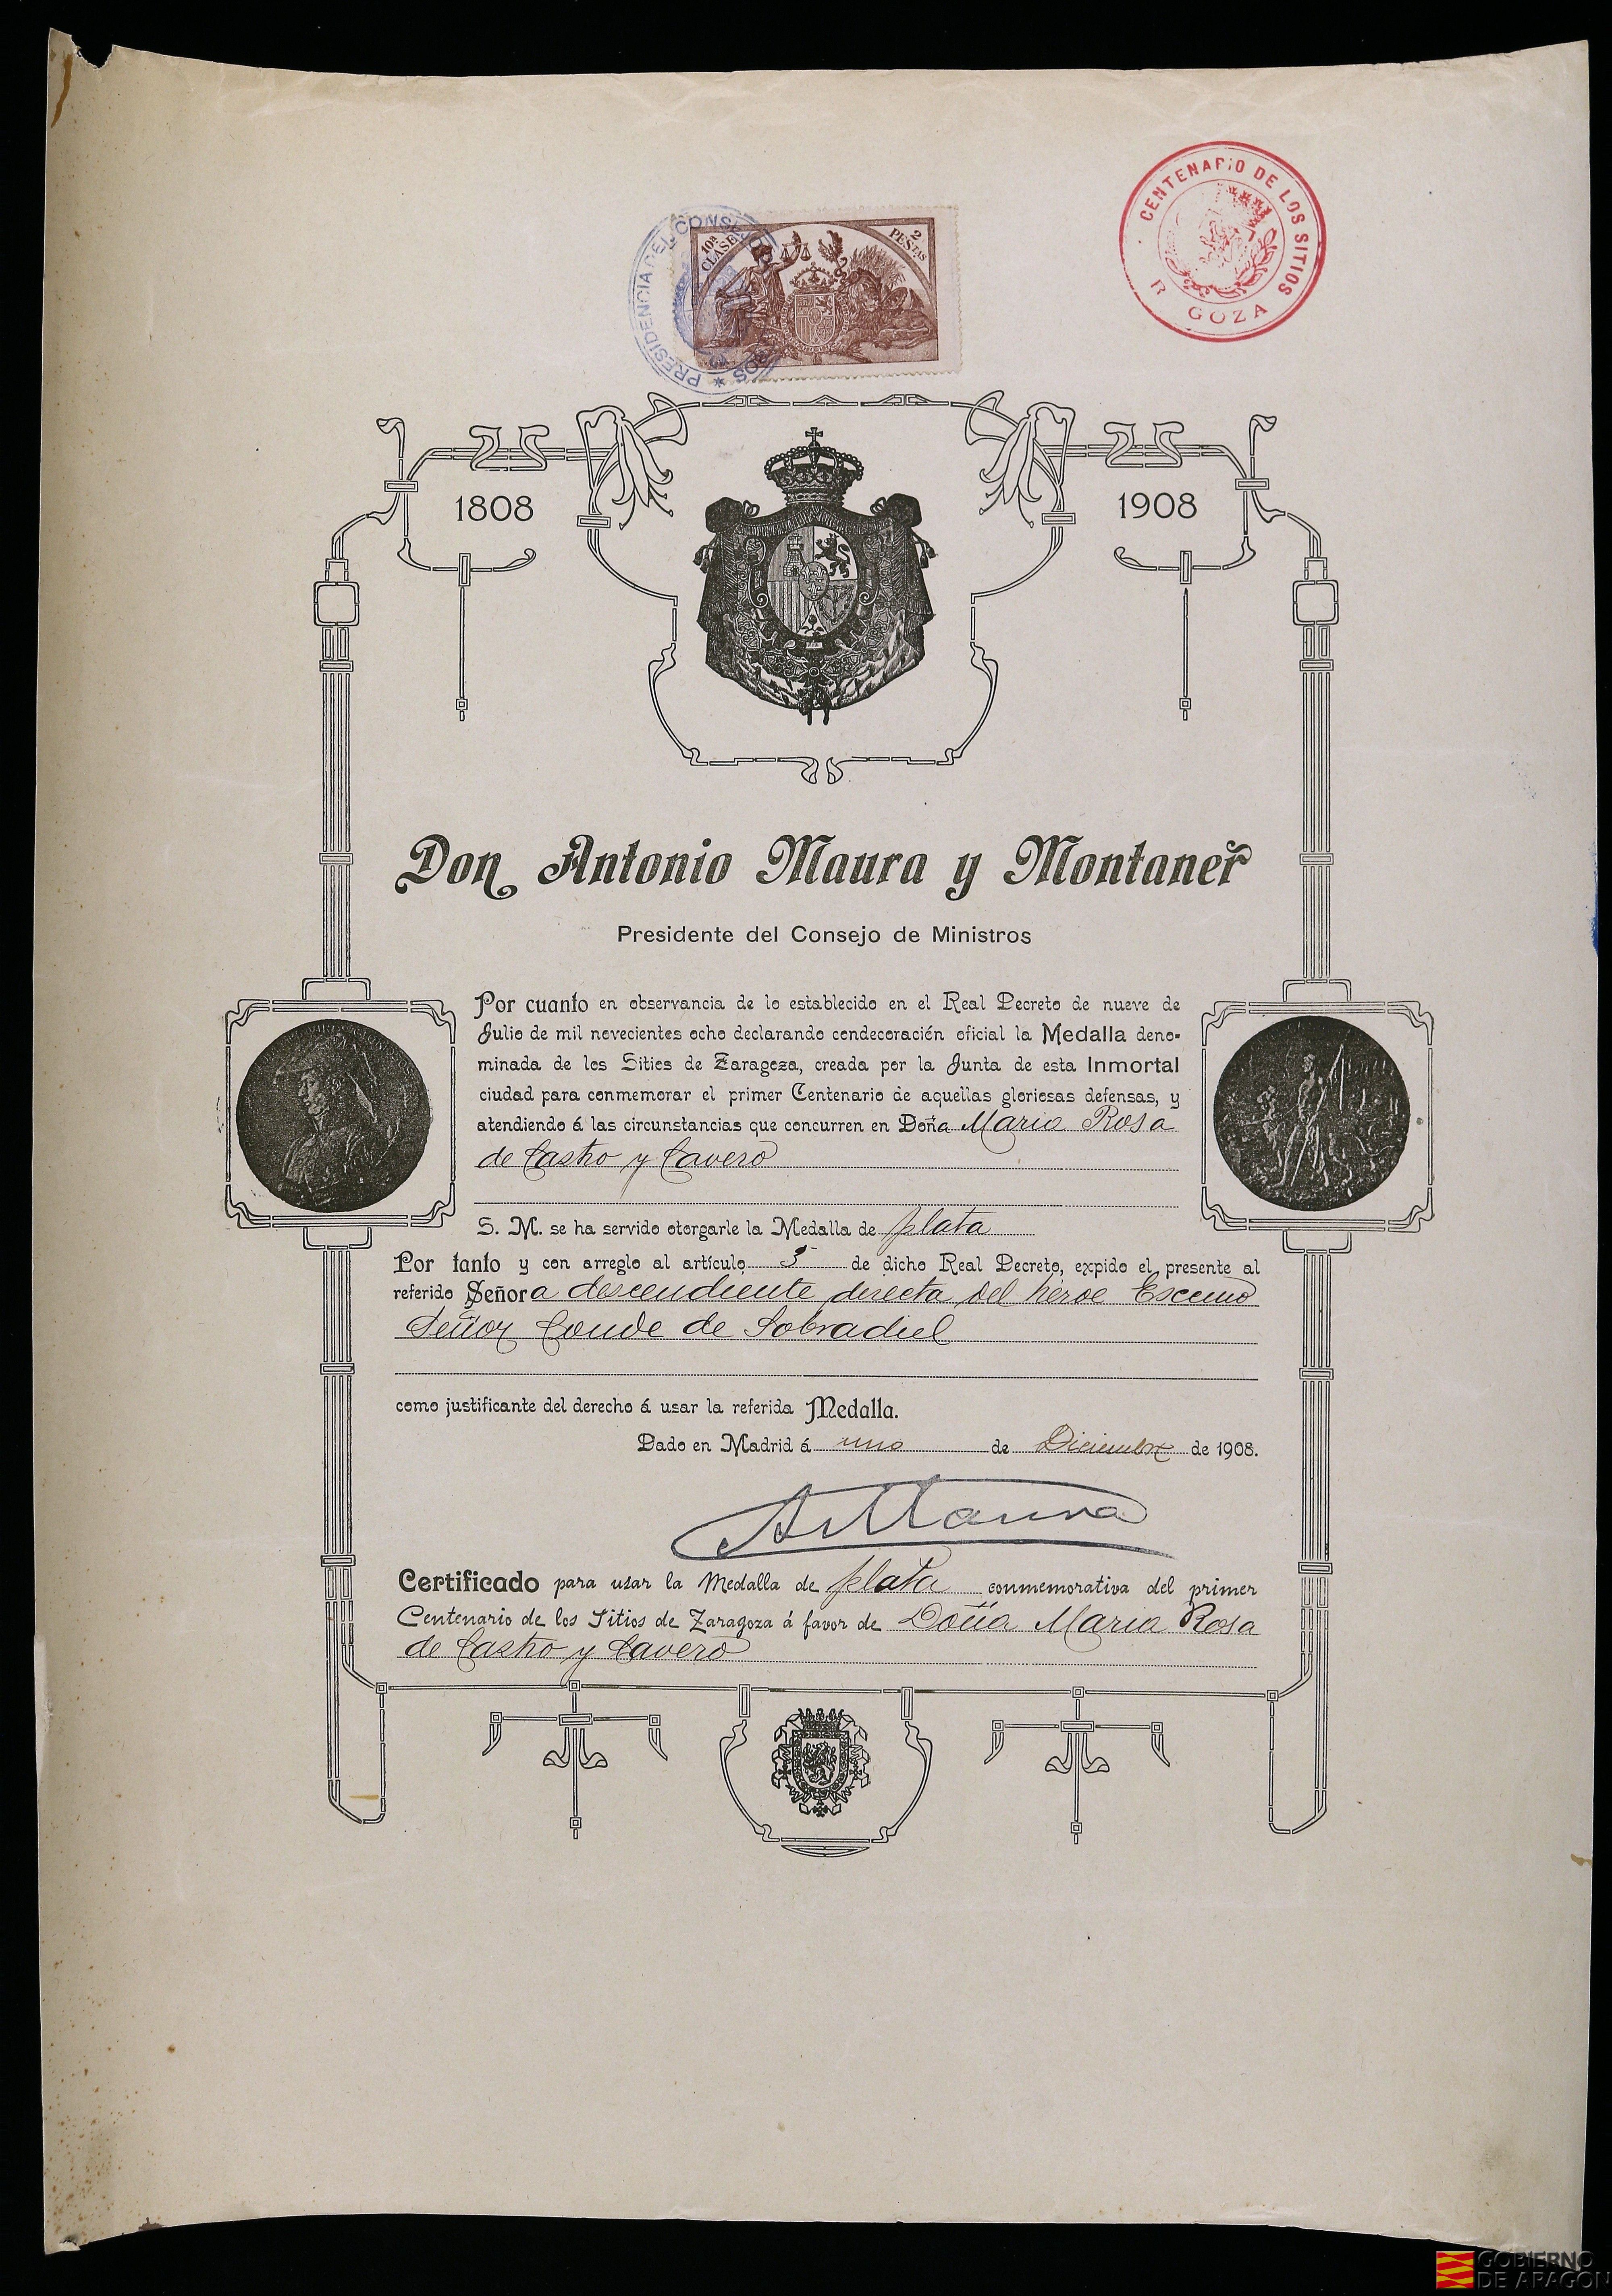 CENTENARIO DE LOS SITIOS
R GOZA
PRESIDENCIA DEL CONSE OS
10ª CLASE
2 PESTAS
1808
1908
Don Antonio Maura y Montaner
Presidente del Consejo de Ministros
Por cuanto en observancia de lo establecido en el Real Decreto de nueve de
Julio de mil novecientos ocho declarando condecoración oficial la Medalla deno-
minada de los Sitios de Zaragoza, creada por la Junta de esta Inmortal
ciudad para conmemorar el primer Centenario de aquellas gloriosas defensas, y
atendiendo á las circunstancias que concurren en Doña Maria Rosa
de Castro y Cavero
S. M. se ha servido otorgarle la Medalla de plata
Por tanto y con arreglo al artículo 5 de dicho Real Decreto, expido el presente al
referido Señora descendiente directa del héroe Excmo
Señor Conde de Sobradiel
como justificante del derecho á usar la referida Medalla.
Dado en Madrid á uno de Diciembre de 1908.
A Maura
Certificado para usar la Medalla de plata conmemorativa del primer
Centenario de los Sitios de Zaragoza á favor de Doña Maria Rosa
de Castro y Cavero
GOBIERNO
DE ARAGON